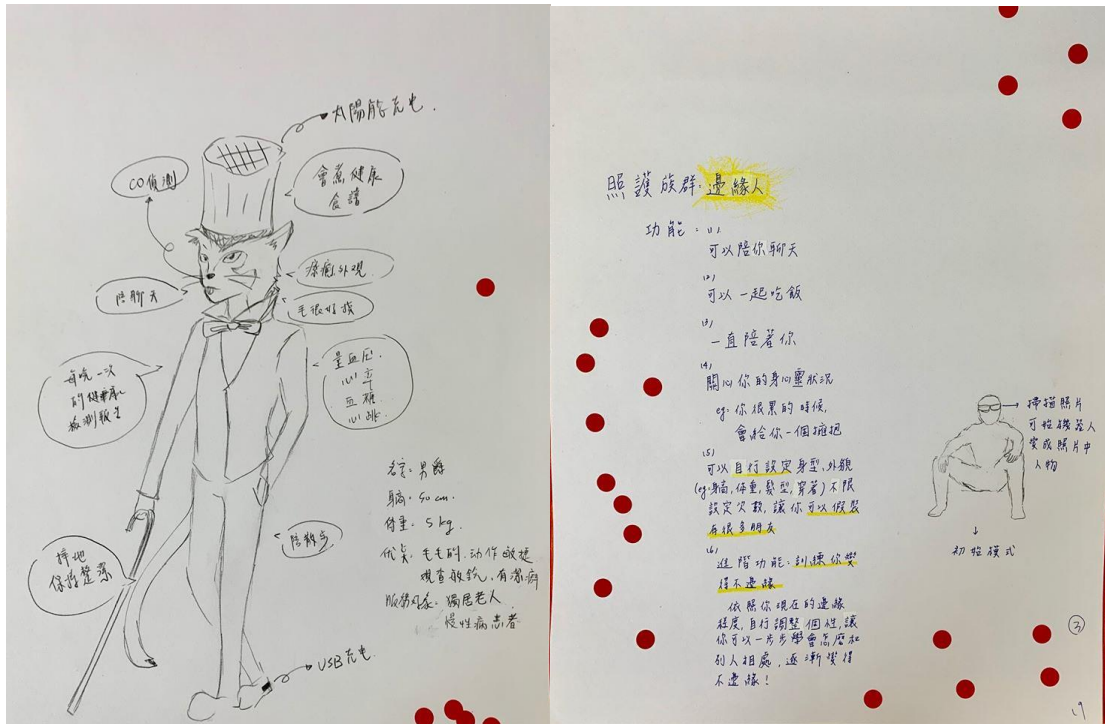 太陽能充电.
CO偵測
會煮健康
食譜
療癒外視
陪聊天
毛很好摸
量血压
心率
血糖
心跳
每晚一次
的健康
檢測報告
名字: 男爵
身高: 50 cm.
体重: 5 kg.
优点: 毛毛的.动作敏捷
观查敏銳, 有潔癖
服務对象: 獨居老人
慢性病患者
陪散步
掃地
保持整潔
USB充电.
照護族群: 邊緣人
功能: (1)
可以陪你聊天
(2)
可以一起吃飯
(3)
一直陪著你
(4)
關心你的身心靈狀況
eg: 你很累的時候,
會給你一個擁抱
(5)
可以自行設定身型,外貌
(eg:身高,体重,髮型,穿著)不限
設定次數, 讓你可以假裝
有很多朋友
(6)
進階功能: 訓練你變
得不邊緣
依照你現在的邊緣
程度,自行調整個性,讓
你可以一步步學會怎麼和
別人相處, 逐漸變得
不邊緣!
掃描照片
可將機器人
變成照片中
人物
初始模式
3
19